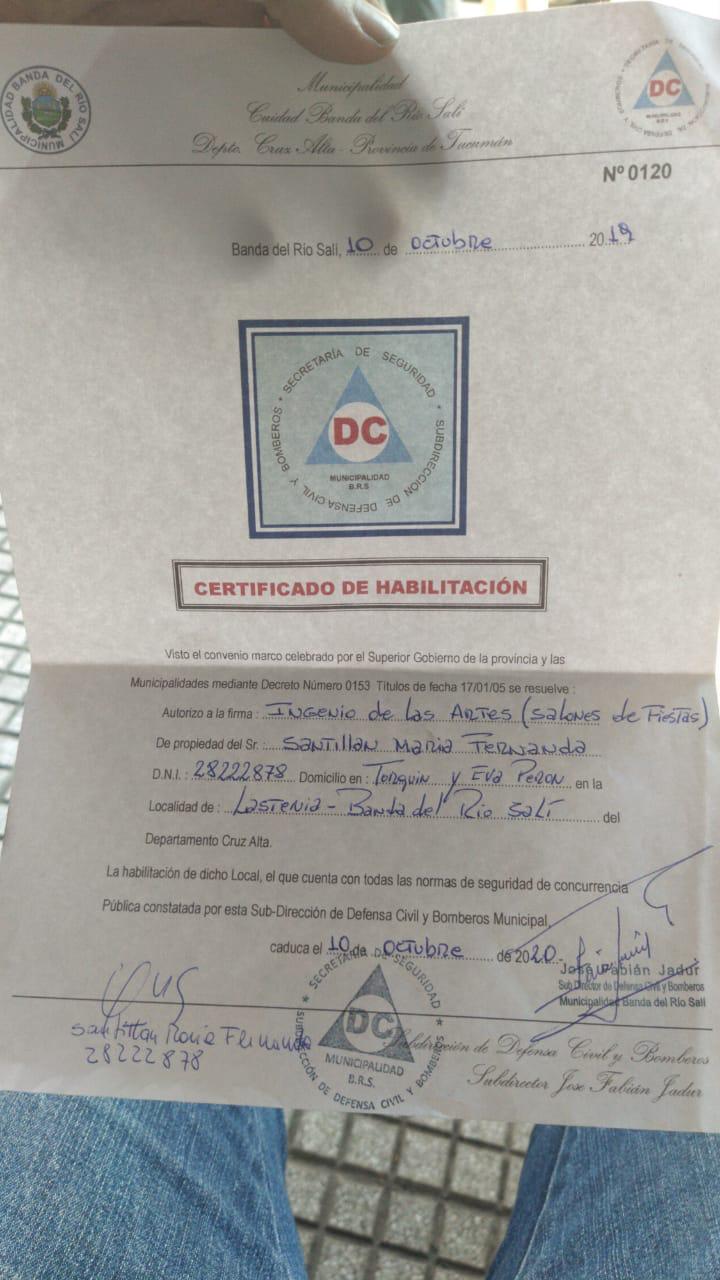 MUNICIPALIDAD BANDA DEL RIO SALI
Municipalidad
Cuidad Banda del Río Salí
Depto. Cruz Alta - Provincia de Tucumán
DC
Nº 0120
Banda del Rio Sali, 10 de Octubre 2019
SECRETARÍA DE SEGURIDAD * SUBDIRECCION DE DEFENSA CIVIL Y BOMBEROS *
DC
MUNICIPALIDAD
B.R.S
CERTIFICADO DE HABILITACIÓN
Visto el convenio marco celebrado por el Superior Gobierno de la provincia y las
Municipalidades mediante Decreto Número 0153 Títulos de fecha 17/01/05 se resuelve :
Autorizo a la firma : INGENIO de las ARTES (SALONES de FIESTAS)
De propiedad del Sr. : SANTILLAN MARIA FERNANDA
D.N.I. : 28222878 Domicilio en : Torquin y EVA PERON en la
Localidad de : LASTENIA - BANDA del Rio SALÍ del
Departamento Cruz Alta.
La habilitación de dicho Local, el que cuenta con todas las normas de seguridad de concurrencia
Pública constatada por esta Sub-Dirección de Defensa Civil y Bomberos Municipal,
caduca el 10 de Octubre de 2020
José Fabián Jadur
Sub Director de Defensa Civil y Bomberos
Municipalidad Banda del Río Salí
Santillan Maria Fernanda
28222878
SECRETARÍA DE SEGURIDAD * SUBDIRECCIÓN DE DEFENSA CIVIL Y BOMBEROS *
DC
MUNICIPALIDAD
B.R.S.
Subdirección de Defensa Civil y Bomberos
Subdirector Jose Fabián Jadur